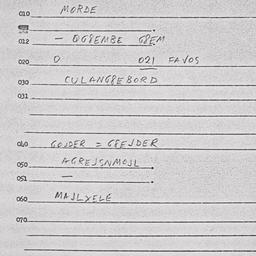 010 MORDE
012 - OGREMBE GREM
020 O 021 FAVOS
030 CULANGREBORD
031
040 GOJDER = GREJDER
050 AGREJSNMOJL
051 —
060 MAJLYELE
070